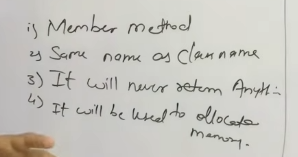 1) Member method
2) Same name as Class name
3) It will never return Anyth:-
4) It will be used to allocate
memory.